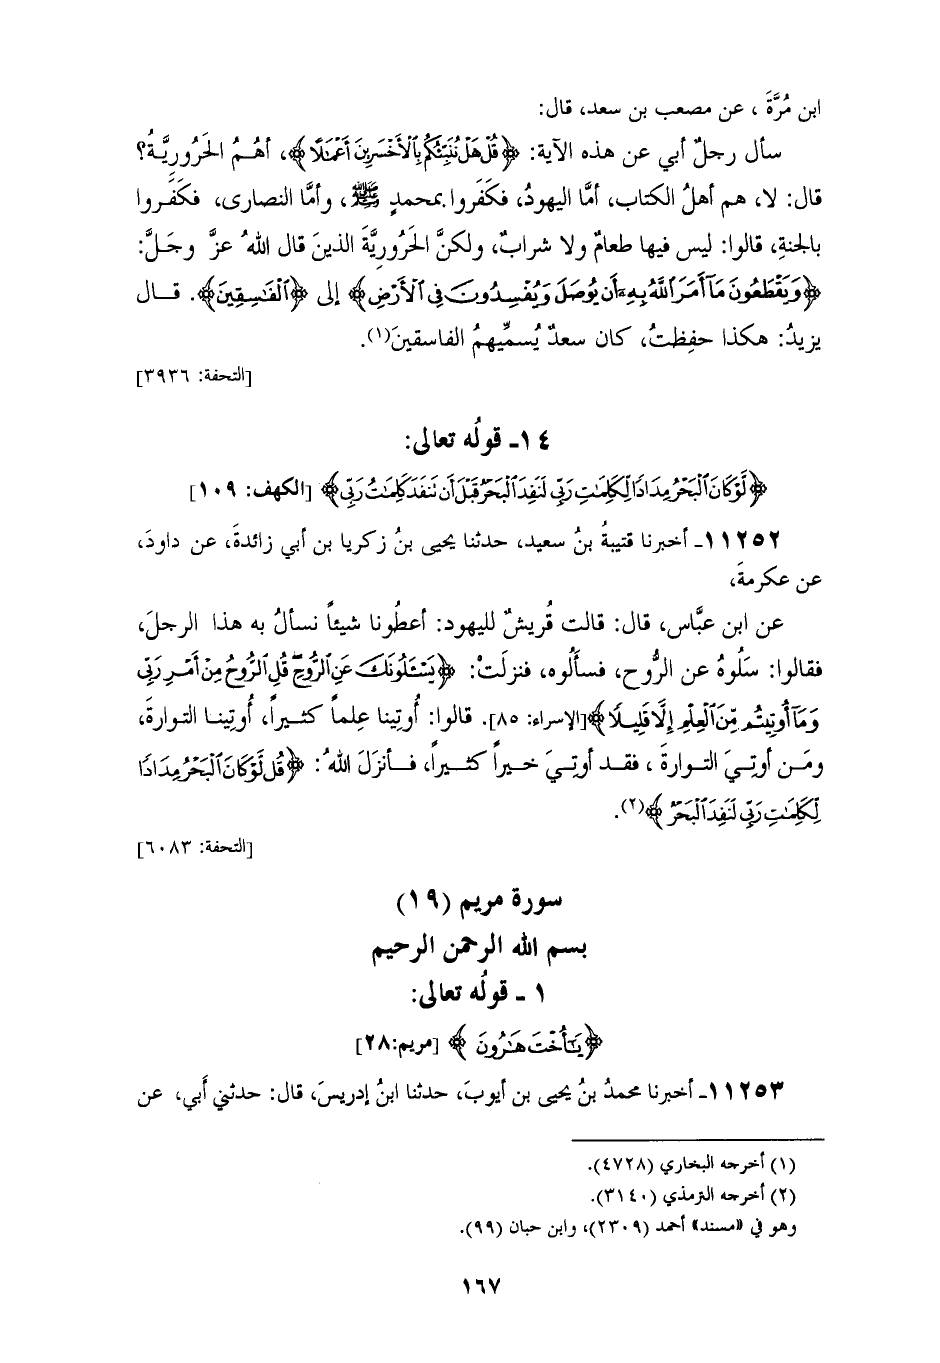 ابن مُرَّةَ ، عن مصعب بن سعد، قال:
سأل رجلٌ أبي عن هذه الآية: ﴿قُلْ هَلْ نُنَبِّئُكُم بِالْأَخْسَرِينَ أَعْمَالًا﴾، أهُمُ الحَرُوريَّةُ؟
قال: لا، هم أهلُ الكتاب، أمَّا اليهودُ، فكَفَروا بمحمدٍ ﷺ، وأمَّا النصارى، فكَفَروا
بالجنةِ، قالوا: ليس فيها طعامٌ ولا شرابٌ، ولكنَّ الحَرُوريَّةَ الذينَ قال اللهُ عزَّ وجَلَّ:
﴿وَيَقْطَعُونَ مَآ أَمَرَ ٱللَّهُ بِهِۦٓ أَن يُوصَلَ وَيُفْسِدُونَ فِى ٱلْأَرْضِ﴾ إلى ﴿ٱلْفَاسِقِينَ﴾. قال
يزيدُ: هكذا حفِظتُ، كان سعدٌ يُسمِّيهمُ الفاسقينَ(١).
[التحفة: ٣٩٣٦]
١٤- قولُه تعالى:
﴿لَّوْ كَانَ ٱلْبَحْرُ مِدَادًا لِّكَلِمَٰتِ رَبِّى لَنَفِدَ ٱلْبَحْرُ قَبْلَ أَن تَنفَدَ كَلِمَٰتُ رَبِّى﴾ [الكهف: ١٠٩]
١١٢٥٢- أخبرنا قتيبةُ بنُ سعيد، حدثنا يحيى بنُ زكريا بن أبي زائدةَ، عن داودَ،
عن عكرمةَ،
عن ابن عبَّاس، قال: قالت قُريشٌ لليهود: أعطُونا شيئاً نسألُ به هذا الرجلَ،
فقالوا: سَلُوهُ عن الرُّوح، فسألُوه، فنزلَتْ: ﴿يَسْـَٔلُونَكَ عَنِ ٱلرُّوحِ قُلِ ٱلرُّوحُ مِنْ أَمْرِ رَبِّى
وَمَآ أُوتِيتُم مِّنَ ٱلْعِلْمِ إِلَّا قَلِيلًا﴾[الإسراء: ٨٥]. قالوا: أُوتِينا عِلماً كثيراً، أُوتِينا التوارةَ،
ومَن أوتِيَ التوارةَ ، فقد أوتِيَ خيراً كثيراً، فأنزَلَ اللهُ: ﴿قُل لَّوْ كَانَ ٱلْبَحْرُ مِدَادًا
لِّكَلِمَٰتِ رَبِّى لَنَفِدَ ٱلْبَحْرُ﴾(٢).
[التحفة: ٦٠٨٣]
سورة مريم (١٩)
بسم الله الرحمن الرحيم
١ - قولُه تعالى:
﴿يَٰٓأُخْتَ هَٰرُونَ﴾ [مريم:٢٨]
١١٢٥٣- أخبرنا محمدُ بنُ يحيى بن أيوبَ، حدثنا ابنُ إدريسَ، قال: حدثني أَبي، عن
(١) أخرجه البخاري (٤٧٢٨).
(٢) أخرجه الترمذي (٣١٤٠).
وهو في «مسند» أحمد (٢٣٠٩)، وابن حبان (٩٩).
١٦٧